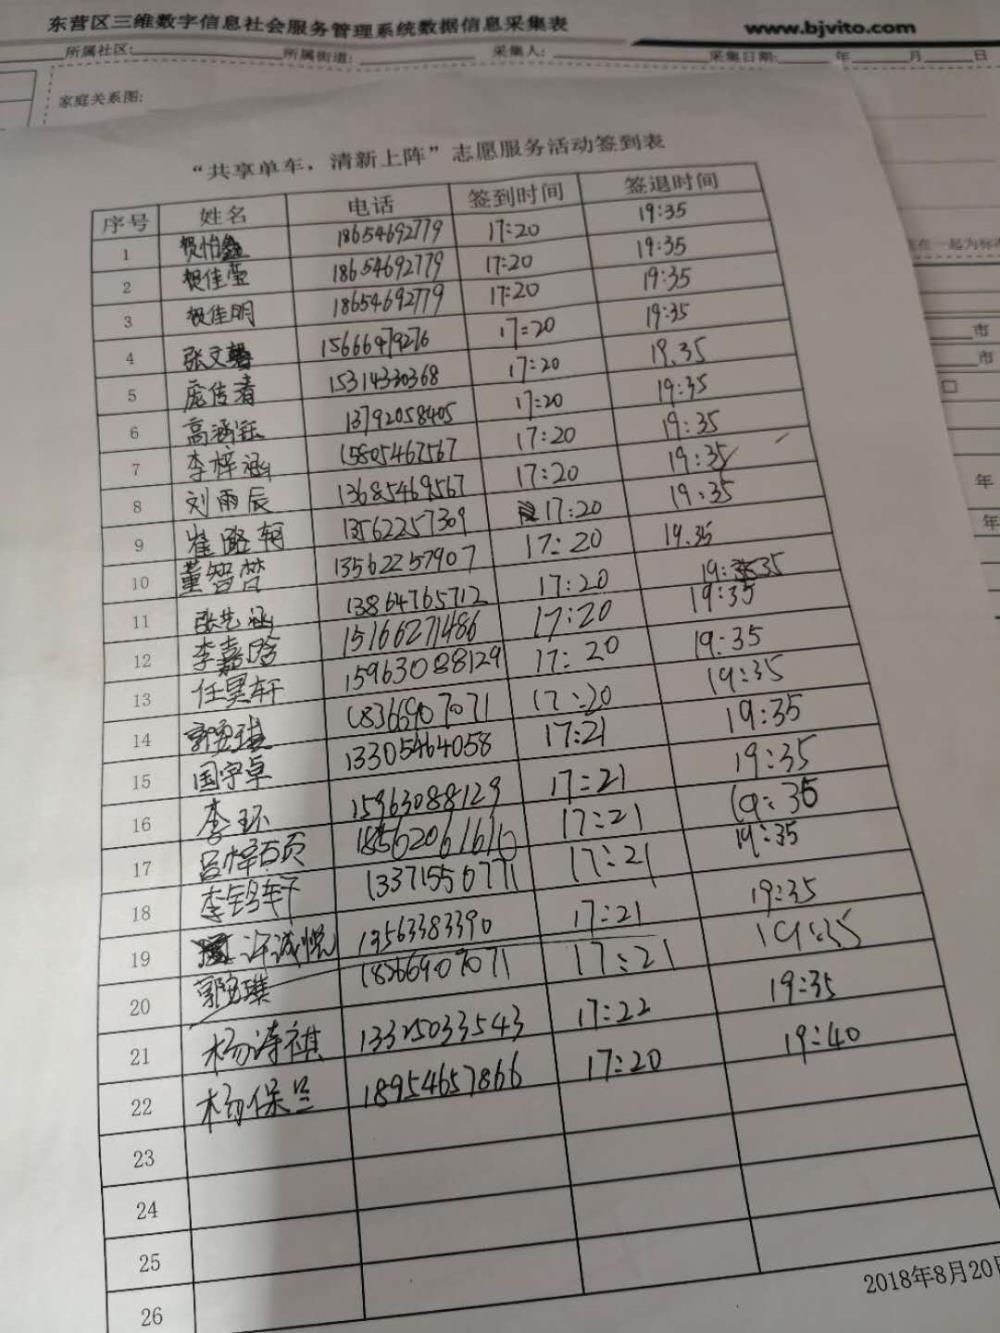 东营区三维数字信息社会服务管理系统数据信息采集表 www.bjvito.com
所属社区: 所属街道: 采集人: 采集日期: 年 月 日
家庭关系图:
“共享单车，清新上阵”志愿服务活动签到表
序号 姓名 电话 签到时间 签退时间
1 贺怡鑫 18654692779 17:20 19:35
2 贺佳莹 18654692779 17:20 19:35
3 贺佳明 18654692779 17:20 19:35
4 张文 15666979276 17:20 19:35
5 庞传青 15314330368 17:20 19.35
6 高涵钰 13792058405 17:20 19:35
7 李梓涵 15805467567 17:20 19:35
8 刘雨辰 13685469567 17:20 19:35
9 崔路轲 13562257309 17:20 19:35
10 董智梵 13562257907 17:20 19.35
11 张艺涵 13864765712 17:20 19:35
12 李嘉晗 15166271486 17:20 19:35
13 任昊轩 15963088129 17:20 19:35
14 郭宴琪 18366907071 17:20 19:35
15 国宇卓 13305464058 17:21 19:35
16 李环 15963088129 17:21 19:35
17 吕梓百页 18562061616 17:21 19:35
18 李钧轩 13371556771 17:21 19:35
19 许诚悦 13563383390 17:21 19:35
20 18366907071 17:21 19:35
21 杨涛祺 13325033543 17:22 19:35
22 杨保兰 18954657866 17:20 19:40
23
24
25
26
2018年8月20日
在一起为标准
市
市
年
年